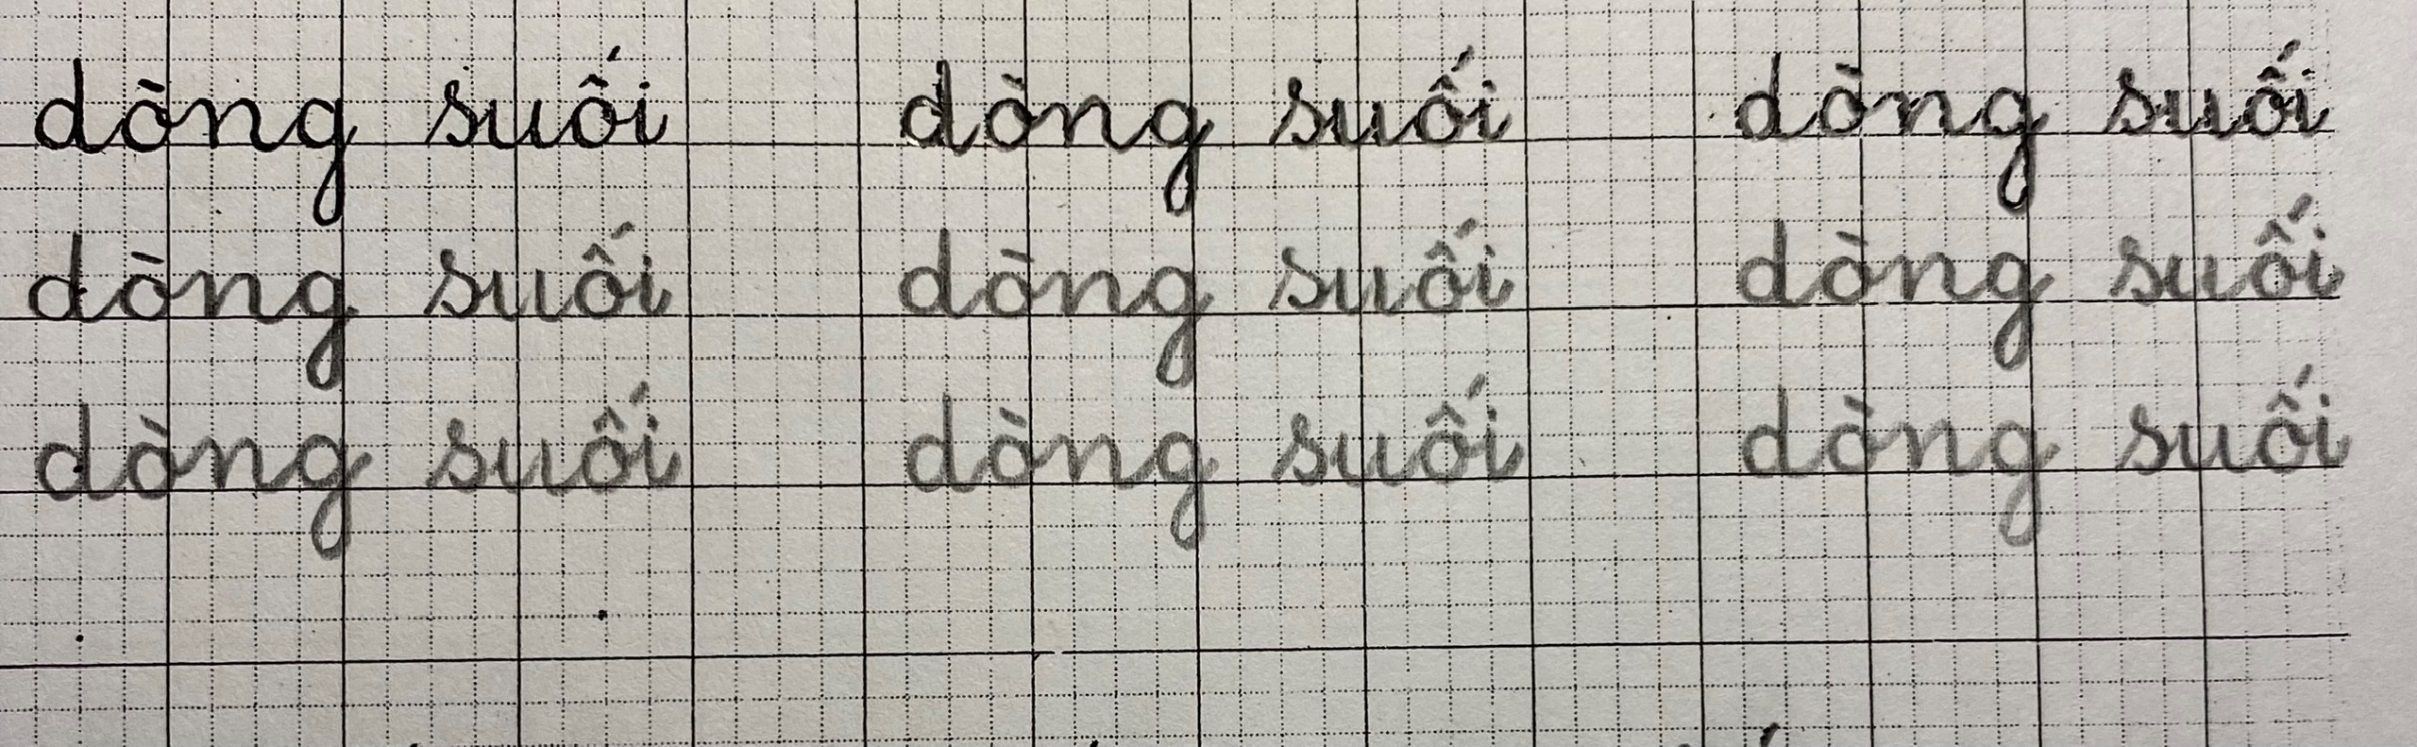 dòng suối dòng suối dòng suối
dòng suối dòng suối dòng suối
dòng suối dòng suối dòng suối